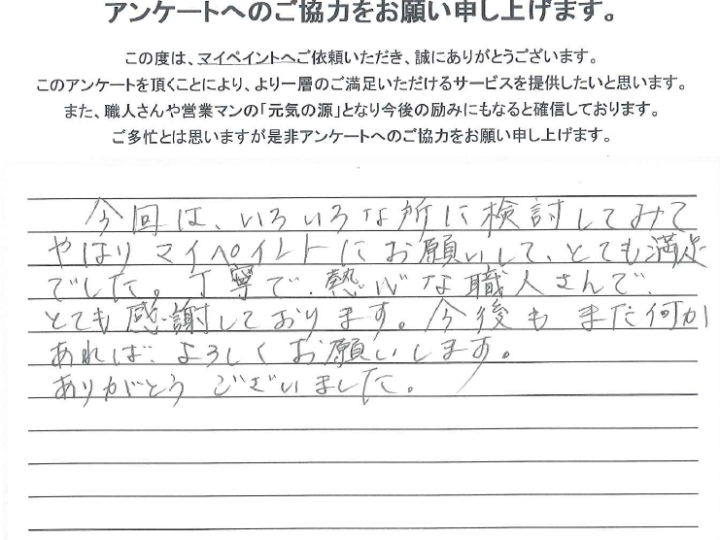 アンケートへのご協力をお願い申し上げます。
この度は、マイペイントへご依頼いただき、誠にありがとうございます。
このアンケートを頂くことにより、より一層のご満足いただけるサービスを提供したいと思います。
また、職人さんや営業マンの「元気の源」となり今後の励みにもなると確信しております。
ご多忙とは思いますが是非アンケートへのご協力をお願い申し上げます。
今回は、いろいろな所に検討してみて
やはりマイペイントにお願いして、とても満足
でした。丁寧で、熱心な職人さんで、
とても感謝しております。今後もまた何か
あれば、よろしくお願いします。
ありがとうございました。